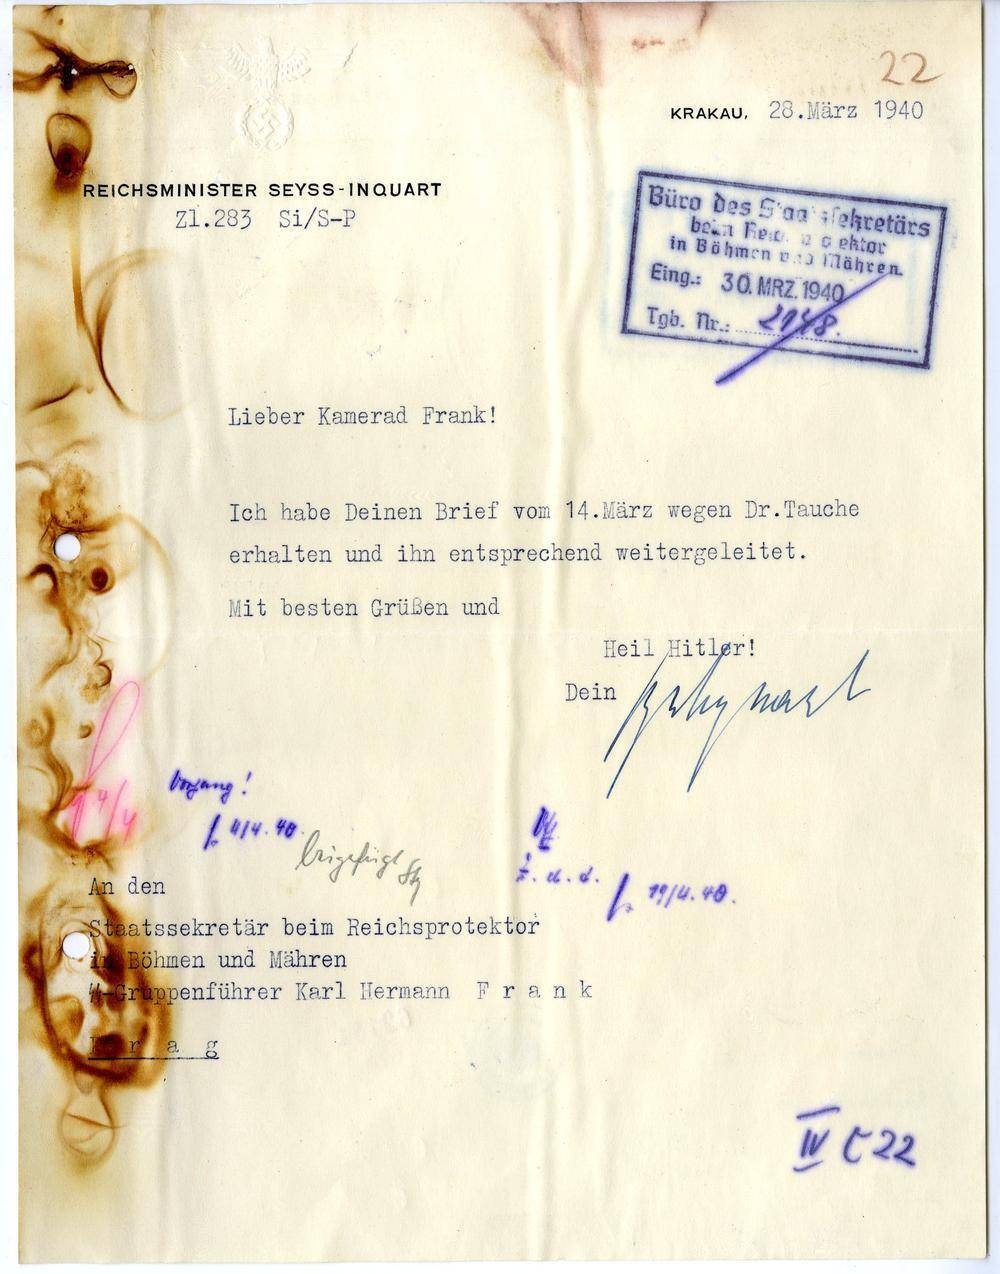 22
KRAKAU, 28.März 1940
REICHSMINISTER SEYSS-INQUART
Zl.283 Si/S-P
Büro des Staatssekretärs
beim
in Böhmen und Mähren.
Eing.: 30. MRZ. 1940
Tgb. Nr.: 2148.
Lieber Kamerad Frank!
Ich habe Deinen Brief vom 14.März wegen Dr.Tauche
erhalten und ihn entsprechend weitergeleitet.
Mit besten Grüßen und
Heil Hitler!
Dein
Vorgang!
4/4. 40.
beigefügt
z. d. A.
19/4. 40.
An den
Staatssekretär beim Reichsprotektor
in Böhmen und Mähren
SS-Gruppenführer Karl Hermann F r a n k
P r a g
IV C 22